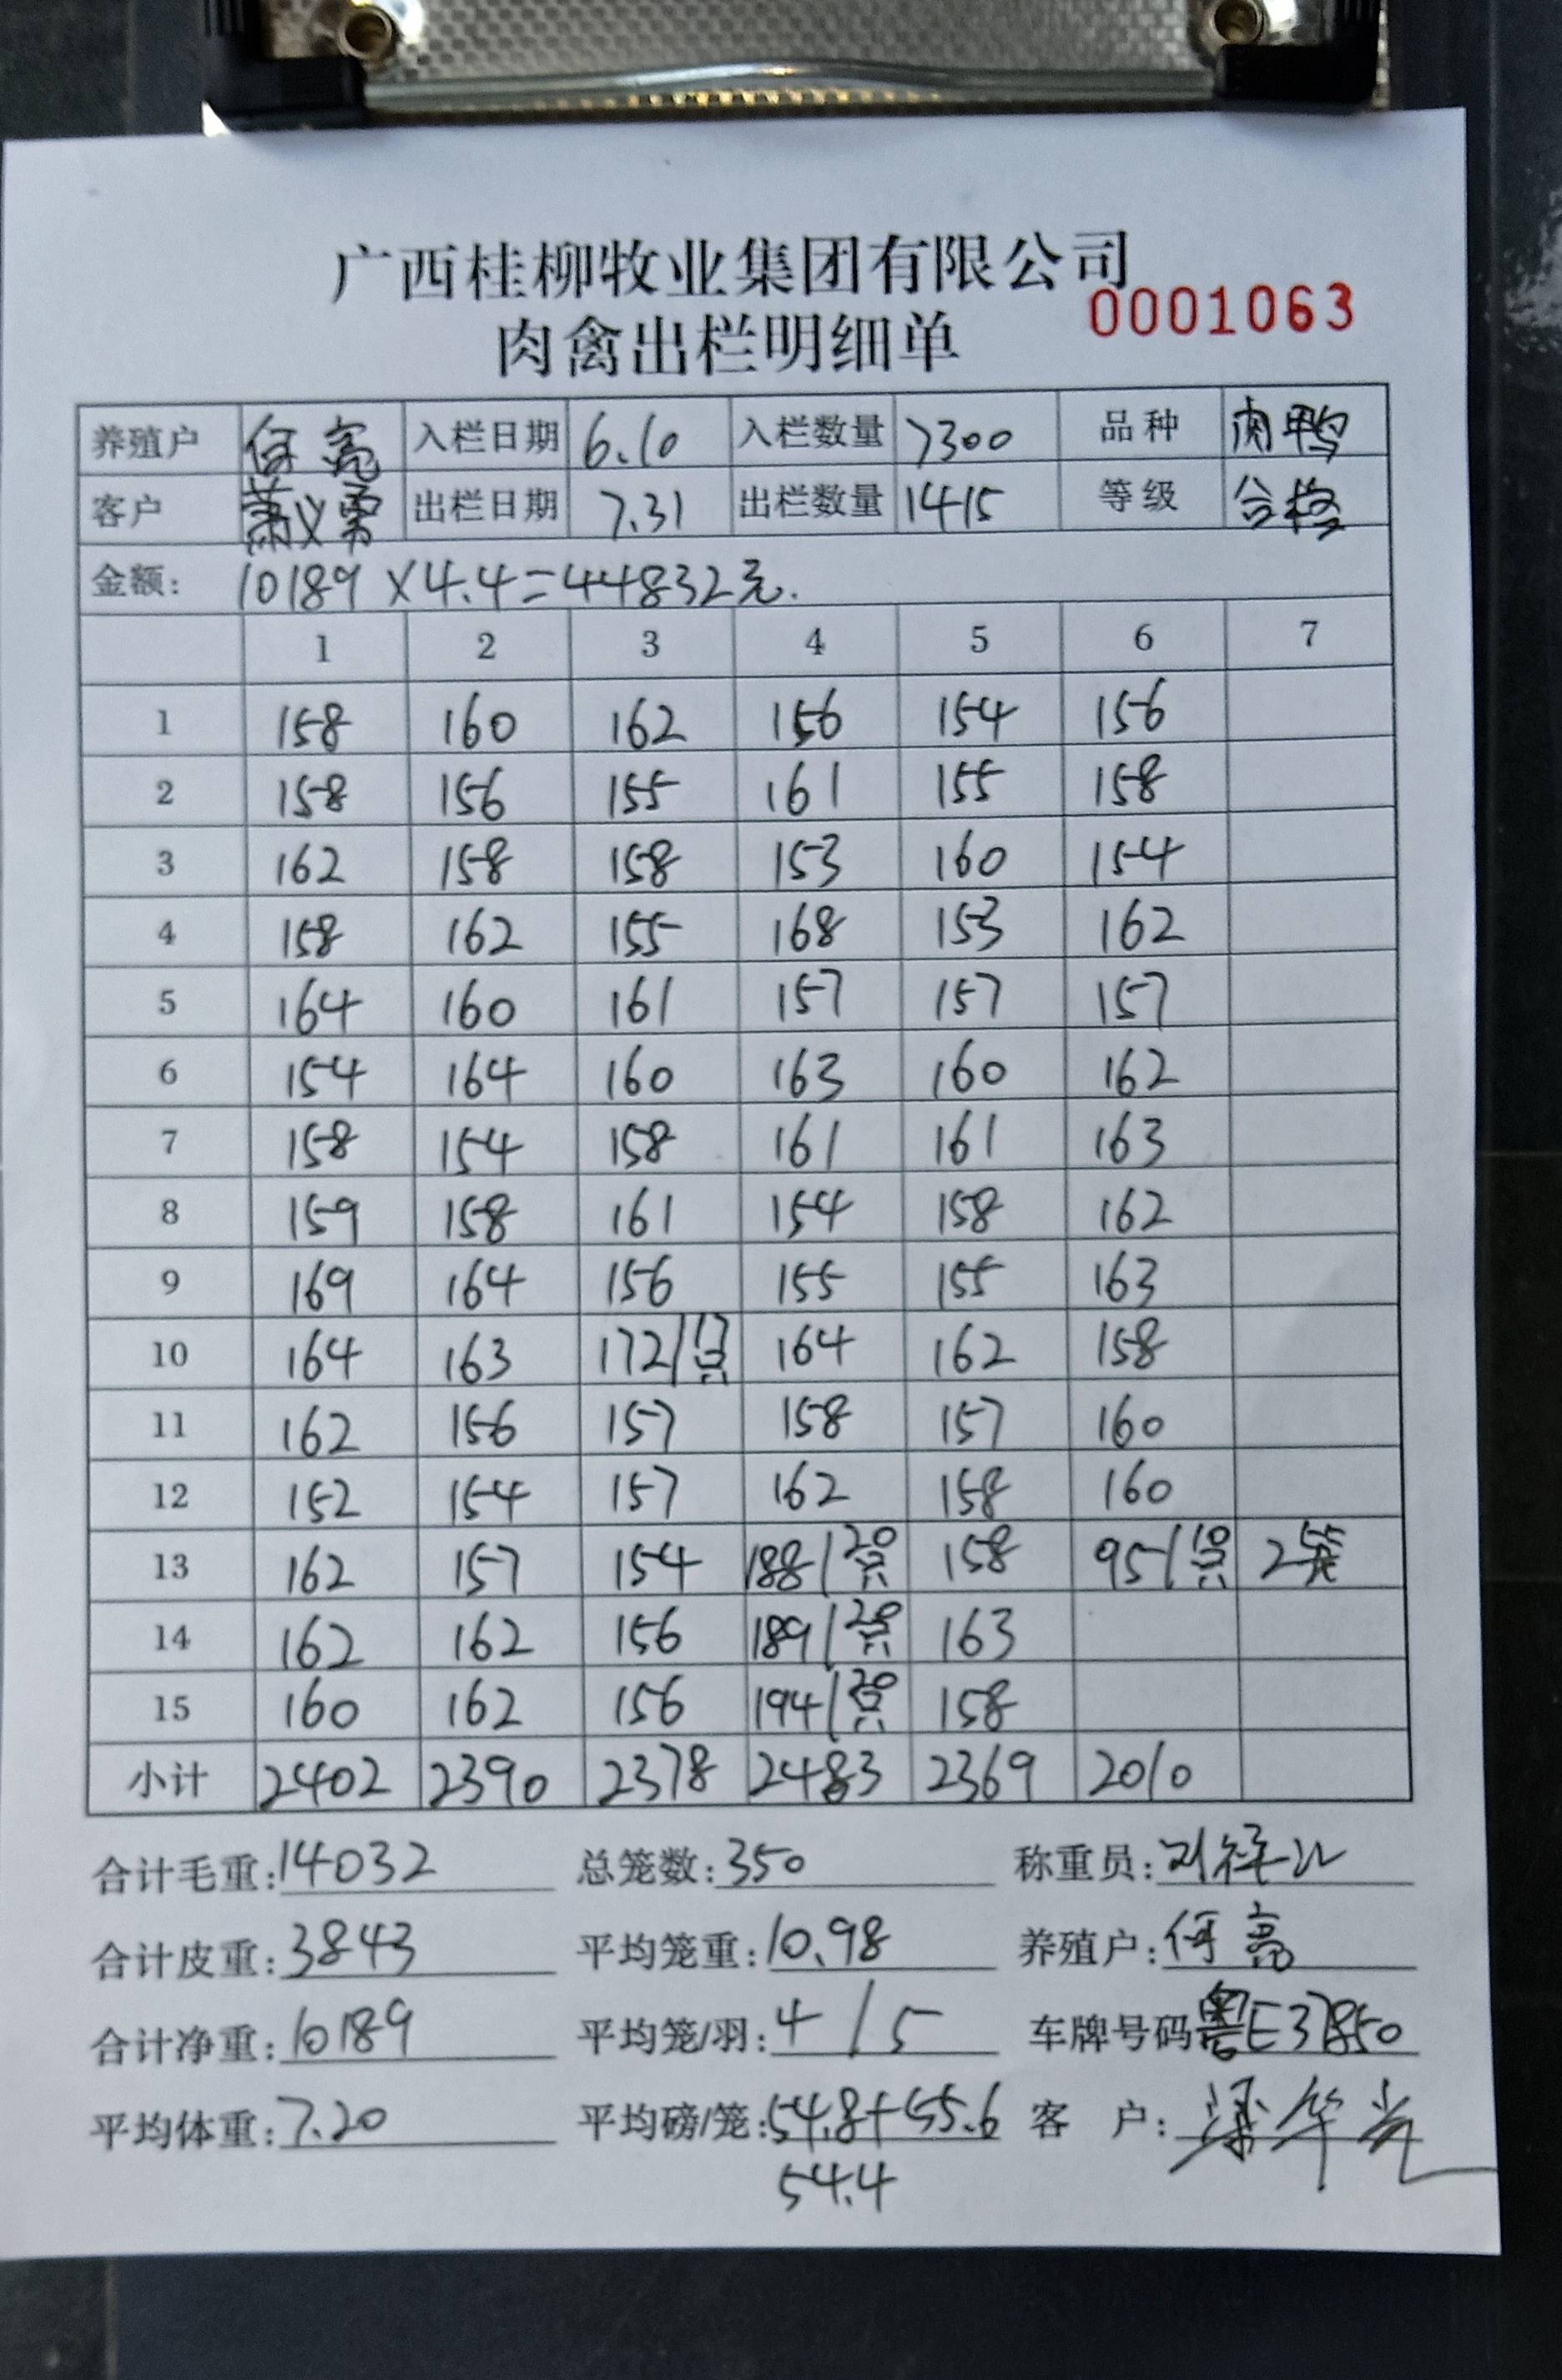 广西桂柳牧业集团有限公司
肉禽出栏明细单 0001063
养殖户 何亮 入栏日期 6.10 入栏数量 7300 品种 肉鸭
客户 萧义勇 出栏日期 7.31 出栏数量 1415 等级 合格
金额: 10189×4.4=44832元.
1 2 3 4 5 6 7
1 158 160 162 156 154 156
2 158 156 155 161 155 158
3 162 158 158 153 160 154
4 158 162 155 168 153 162
5 164 160 161 157 157 157
6 154 164 160 163 160 162
7 158 154 158 161 161 163
8 159 158 161 154 158 162
9 169 164 156 155 155 163
10 164 163 172/17只 164 162 158
11 162 156 157 158 157 160
12 152 154 157 162 158 160
13 162 157 154 188/20只 158 95/10只 2
14 162 162 156 189/20只 163
15 160 162 156 194/20只 158
小计 2402 2390 2378 2483 2369 2010
合计毛重:14032 总笼数:350 称重员:刘
合计皮重:3843 平均笼重:10.98 养殖户:何亮
合计净重:10189 平均笼/羽:4/5 车牌号码粤E37850
平均体重:7.20 平均磅/笼:54.8+55.6 客 户:梁华光
54.4